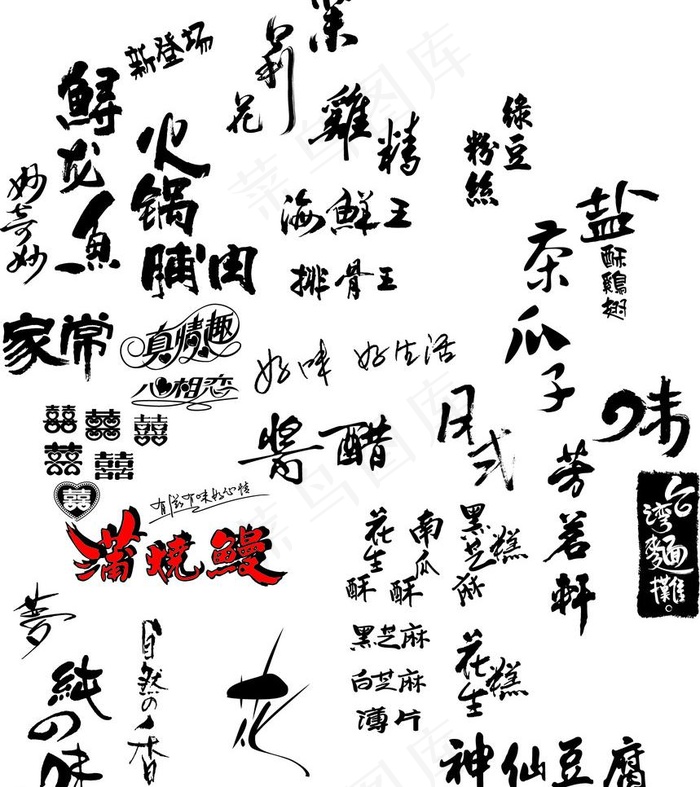 新登场
莉
花
菜
鷄精
绿豆
粉絲
鲟龙鱼
妙奇妙
火锅
脯肉
海鮮王
排骨王
盐
酥鷄翅
茶瓜子
家常
真情趣
心相恋
好味 好生活
囍囍囍
囍囍
囍
醬醋
日式
味
有滋有味好心情
蒲燒鳗
花生酥
南瓜酥
黑芝麻糕
芳茗軒
台灣麵攤
夢
自然の香
花
黑芝麻
白芝麻
薄片
花生糕
純の味
神仙豆腐
菜鸟图库